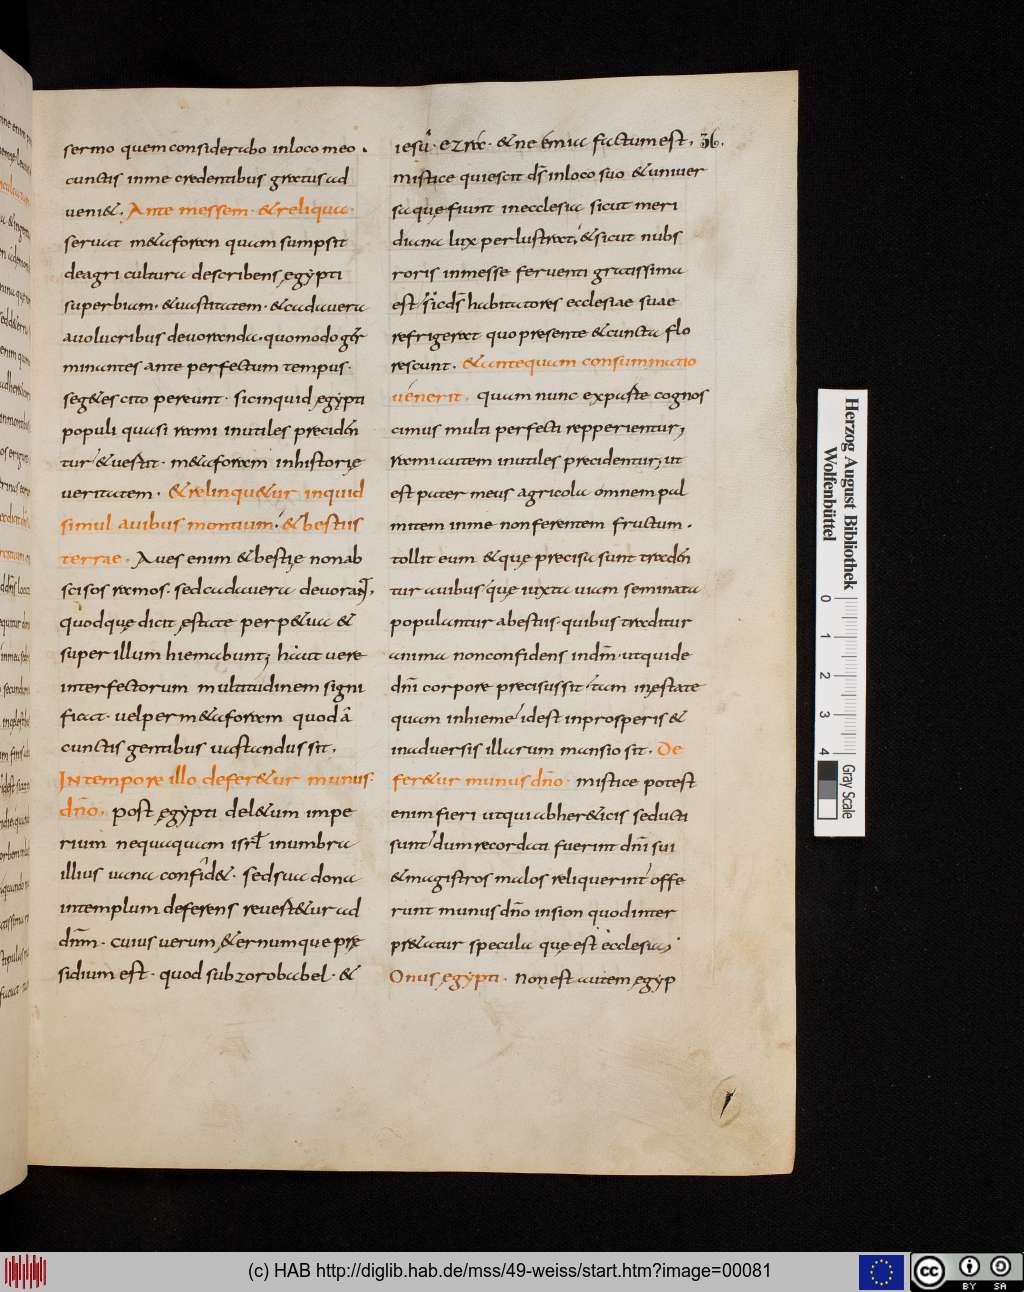 sermo quem considerabo in loco meo .
cunctis in me credentibus gratus ad
ueni&. Ante messem· & reliqua·
seruat m&aforam quam sumpsit
de agri cultura describens ęgypti
superbiam· & uastitatem· & cadauera
a uolucribus deuoranda· quomodo ger
minantes ante perfectum tempus·
seg&es cito pereunt· sic inquid ęgypti
populi quasi rami inutiles precidēn
tur & uestit· m&aforam in historię
ueritatem· & relinqu&ur inquid
simul auibus montium· & bestiis
terrae· Aues enim & bestię non ab
scisos ramos· sed cadauera deuorant,
quodque dicit ęstate perp&ua &
super illum hiemabunt; haut uere
interfectorum multitudinem signi
ficat· uel per m&aforam quod a
cunctis gentibus uastandus sit.
In tempore illo defer&ur munus·
dn̄o. post ęgypti del&um impe
rium nequaquam isrl̄ in umbra
illius uana confid&· sed sua dona
in templum deferens reuest&ur ad
dnm̄· cuius uerum, &ernumque prę
sidium est· quod sub zorobabel· &
iesu· ezra· & neemia factum est. 36.
Mistice quiescit ds̄ in loco suo & uniuer
sa que fiunt in ecclesia sicut meri
diana lux perlustrat, & sicut nubs
roris in messe feruenti gratissima
est sic ds̄ habitatores ecclesiae suae
refrigerat quo presente & cuncta flo
rescunt. & antequam consummatio
uenerit. quam nunc ex paste cognos
cimus multi perfecti repperientur;
rami autem inutiles precidentur; ut
est pater meus agricola omnem pal
mitem in me non ferentem fructum.
tollit eum & que precisa sunt tradēn
tur auibus que iuxta uiam seminata
populantur a bestiis· quibus traditur
anima non confidens in dn̄m· ut qui de
dn̄i corpore precisus sit tam in ęstate
quam in hieme id est in prosperis &
in aduersis illarum mansio sit. De
fer&ur munus dn̄o· mistice potest
enim fieri ut qui ab her&icis seducti
sunt dum recordati fuerint dn̄i sui
& magistros malos reliquerint offe
runt munus dn̄o in sion quod inter
pr&atur specula que est ecclesia;
Onus ęgypti· Non est autem ęgyp
Herzog August Bibliothek
Wolfenbüttel
0 1 2 3 4
Gray Scale
(c) HAB http://diglib.hab.de/mss/49-weiss/start.htm?image=00081
cc BY SA